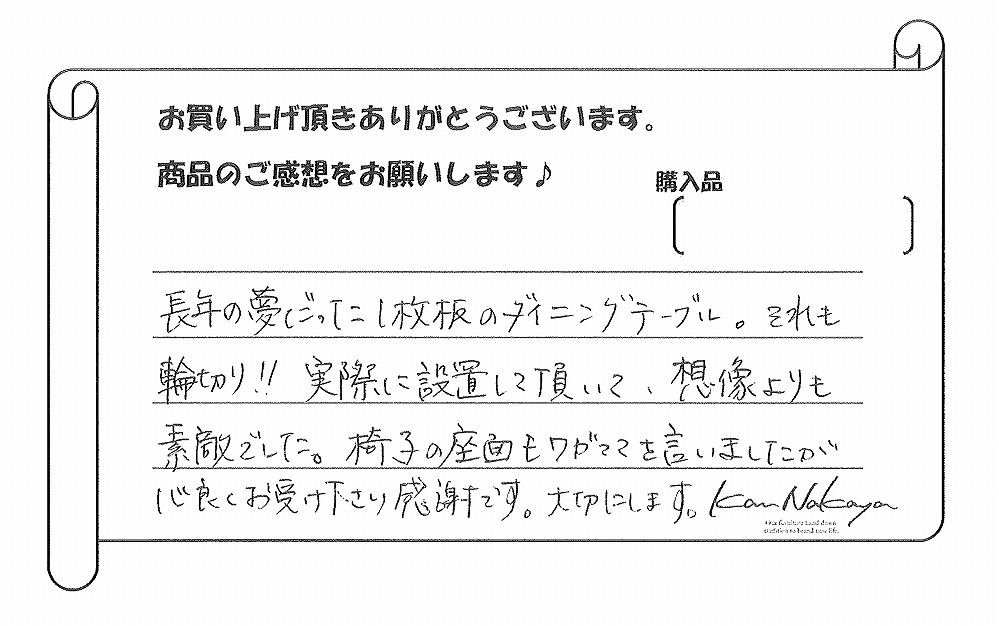 お買い上げ頂きありがとうございます。
商品のご感想をお願いします♪
購入品
長年の夢だった1枚板のダイニングテーブル。それも
輪切り!! 実際に設置して頂いて、想像よりも
素敵でした。椅子の座面もワガママを言いましたが
心良くお受け下さり感謝です。大切にします。Kan Nakaya
Our furniture hand down
tradition to brand-new life.